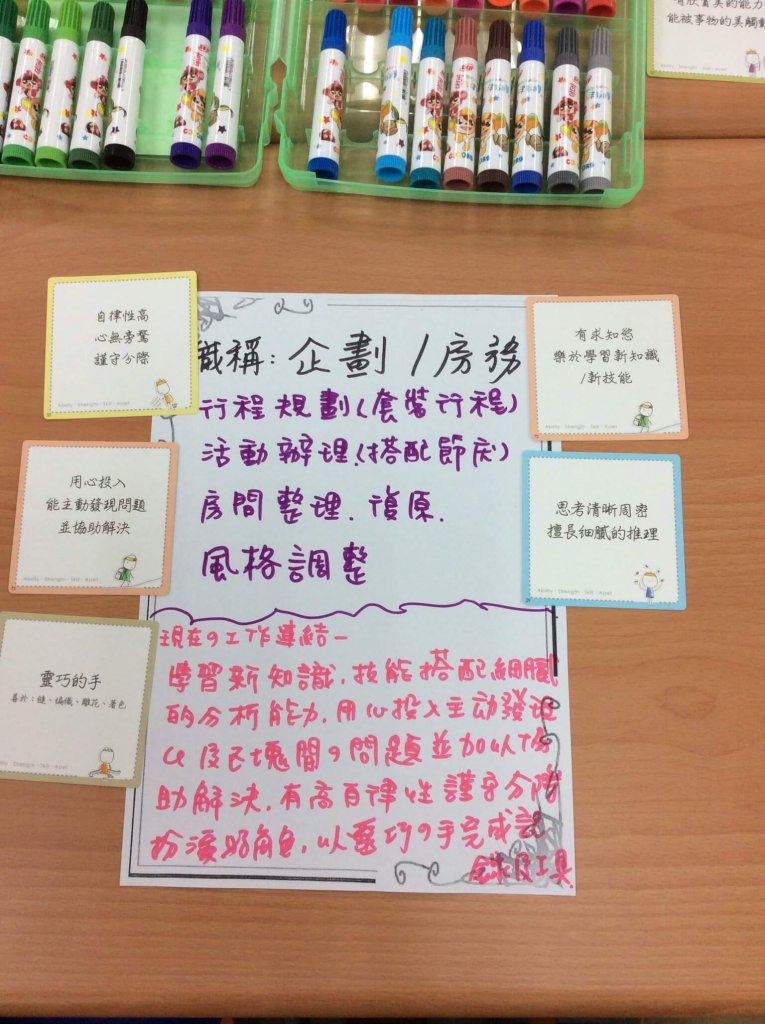 有欣賞美的能力
能被事物的美觸動
自律性高
心無旁騖
謹守分際
用心投入
能主動發現問題
並協助解決
靈巧的手
善於：縫、編織、雕花、著色
職稱：企劃/房務
行程規劃(套裝行程)
活動辦理.(搭配節庆)
房間整理.復原.
風格調整
現在の工作連結－
學習新知識.技能搭配細膩
的分析能力.用心投入主动發現
以及 の問題並加以協
助解決.有高自律性謹守分際
扮演好角色.以靈巧の手完成記
錄及工具.
有求知慾
樂於學習新知識
/新技能
思考清晰周密
擅長細膩的推理
Ability · Strength · Skill · Asset
Ability · Strength · Skill · Asset
Ability · Strength · Skill · Asset
Ability · Strength · Skill · Asset
Ability · Strength · Skill · Asset